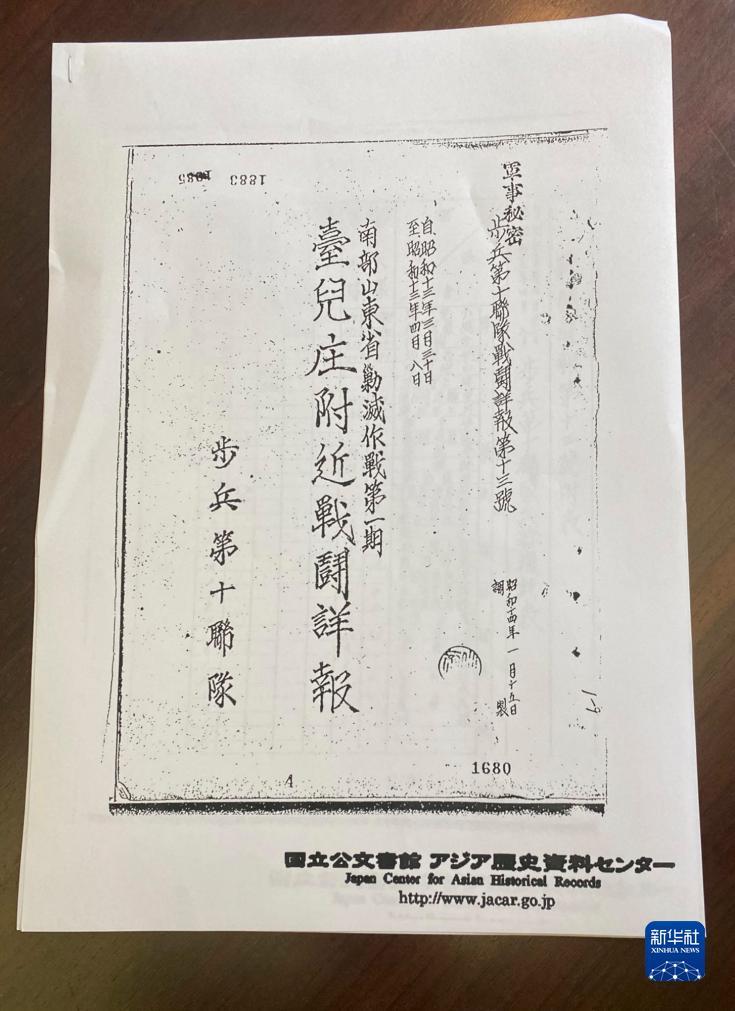 軍事秘密
歩兵第十聯隊戰鬪詳報第十三號
昭和十四年一月十五日
調製
自昭和十三年三月三十日
至昭和十三年四月八日
南部山東省勦滅作戰第一期
臺兒庄附近戰鬪詳報
歩兵第十聯隊
1883
1680
A
国立公文書館 アジア歴史資料センター
Japan Center for Asian Historical Records
http://www.jacar.go.jp
新华社
XINHUA NEWS